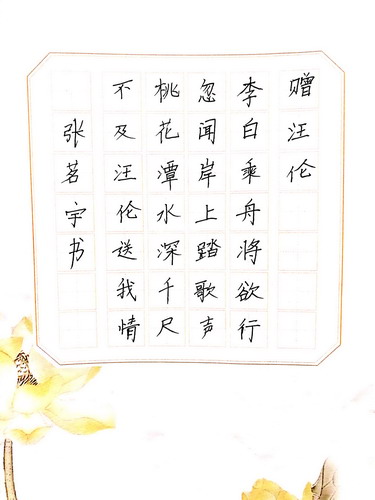 赠汪伦
李白乘舟将欲行
忽闻岸上踏歌声
桃花潭水深千尺
不及汪伦送我情
张茗宇书